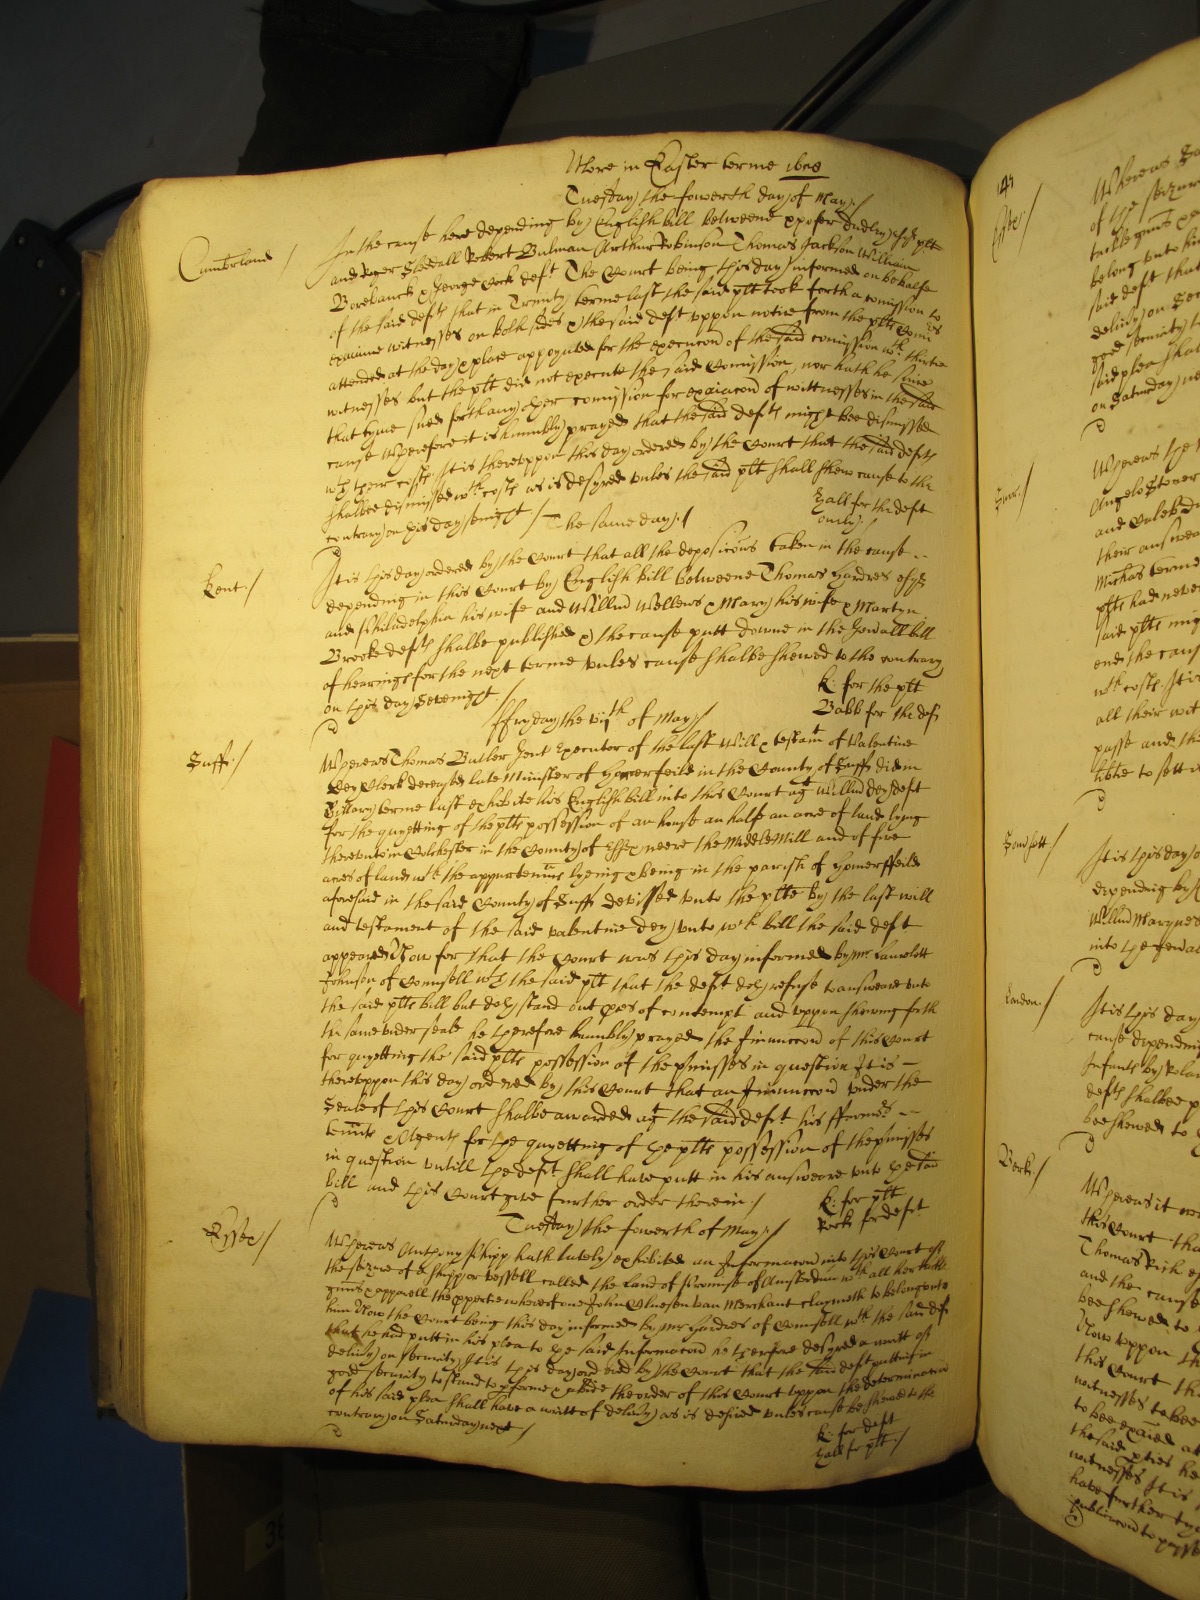 More in Easter terme 1608
Tuesday the fowerth day of May./
Cumberland / In the cause here depending by English bill betweene xpofer Dudley esqr plt
and Roger Robert Bulman Arthur Robinson Thomas Jackson William
Borebanck & George Cork defts The Court being this day informed on behalfe
of the said defts that in Trinity terme last the said plt took forth a comission to
examine witnesses on both sides & the said deft uppon notice from the plts
attended at the day & place appoynted for the execucon of the said comission wth thirtie
witnesses but the plt did not execute the said Comission, nor hath he since
that tyme sued forth any other comission for exaiacon of wittnesses in the said
cause Wherefore it is humbly prayed that the said defts might bee dismissed
wth their costs, It is thereuppon this day ordered by the Court that the said defts
shalbee dismissed wth costs as is desyred unles the said plt shall shew cause to the
contrary on this day senight / Hall for the deft
The same day./ onely./
Kent./ It is this day ordered by the Court that all the deposicons taken in the cause
depending in this Court by English bill betweene Thomas Hardres esqr
and Philadelphia his wife and Willm Wellews & Mary his wife & Martyn
Brooke defts shalbe published & the cause putt downe in the Jewall bill
of hearings for the next terme unles cause shalbe shewed to the contrary
on this day Sevenight / K: for the plt
ffryday the vijth of May./ Babb for the deft
Suff:/ Whereas Thomas Butler gent Executor of the last Will & testamt of Valentine
Dey Clerk deceased late Minister of Homerfeild in the County of Suff did in
Hillary terme last exhibite his English bill into this Court agt Willm Dey deft
for the quyetting of the plts possession of an house an halfe an acre of land lying
thereunto in Colchester in the County of Essex neere the Middle Mill and of five
acres of land wth the appurtennces lyeing & being in the parish of Homerffeild
aforesaid in the said County of Suff devised unto the plte by the last will
and testament of the said valentine Dey, unto wch bill the said deft
appeared Now for that the Court was this day informed by Mr Lancelott
Johnson of Counsell wth the said plt that the deft doth refuse to answeare unto
the said plts bill but doth stand out pces of contempt and uppon shewing forth
the same under seale he therefore humbly prayed the Iniunccon of this Court
for quyetting the said plts possession of the pmisses in question It is
thereuppon this day ordered by this Court that an Iniunccon under the
Seale of this Court shalbe awarded agt the said deft his ffarmers
tennts & Agents for the quyetting of the plts possession of the pmisses
in question untill the deft shall have putt in his answeare unto the said
bill and this Court give further order therein./ K: for plt
Tuesday the fowerth of May./ Rock for deft
Essex / Whereas Anthony Phipp hath lately exhibited an Informacon into this Court of
the seizure of a shipp or vessell called the Land of Promise of Amsterdam wth all her tackle
gunns & apparell the ppertie whereof one John Cluesen van Merchant claymeth to belong unto
him Now the Court being this day informed by Mr Hardres of Counsell wth the said deft
that he had putt in his plea to the said Informacon he therefore desyred a writt of
delivery on security, It is this day ordered by the Court that the said deft putting in
good security to stand to pforme & abide the order of this Court uppon the determinacon
of his said plea shall have a writt of delivery as is desired unles cause be shewed to the
contrary on Saturday next / K: for deft
Hall for plt./
149
Whereas
of the seizur
tackle gunns
belong unto hi
said deft that
delivery on Se
good security t
said plea shal
on Saturday ne
Whereas the
Angelo Stoner
and Caleb
their answea
Michas terme
plts had never
said plts mig
end the caus
wth costs. It i
all their wit
passe and th
libtie to sett
It is this day o
depending by
Willm Marques
into the Jewa
London./ It is this day
cause dependin
Infants by Rolan
defts shalbee p
bee shewed to
Berk / Whereas it w
this Court tha
Thomas Rich e
and the cause
bee shewed to
Now uppon th
this Court th
witnesses to bee
to bee exaied at
the said pties he
witnesses It is
have further tym
publicacon to passe